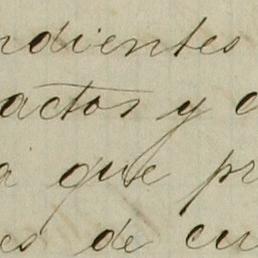 ndientes
actos y c
a que pr
es de cu